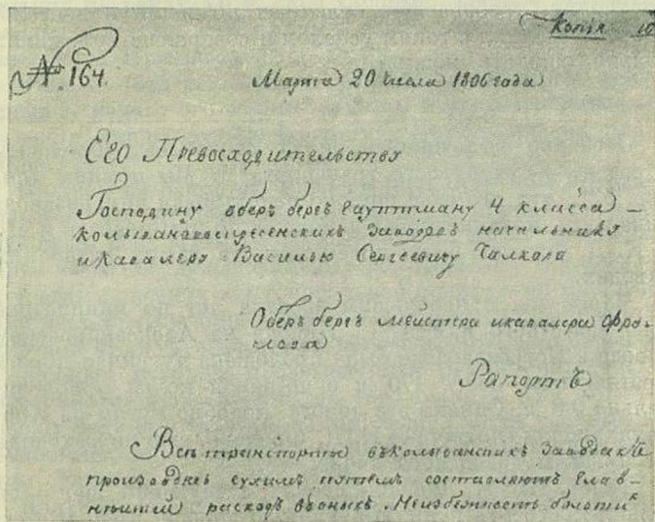 Копія
№ 164.
Марта 20 числа 1806 года
Его Превосходительству
Господину оберъ бергъ гауптману 4 класса
Колыановоскресенскихъ Заводовъ начальнику
и Кавалеру Василью Сергеевичу Чалкова
Оберъ бергъ мейстера и кавалера Фро-
лова
Рапортъ
Всѣ транспорты въ колыванскихъ заводахъ
производяс сухимъ путемъ составляютъ глав-
нѣйшей расходъ оныхъ. Неизбежность